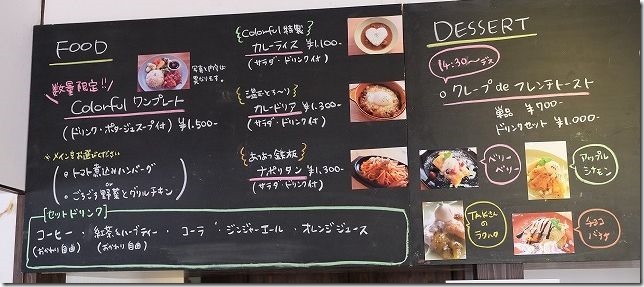 FOOD
数量限定!!
Colorful ワンプレート
(ドリンク・ポタージュスープ付) ¥1,500-
写真と内容は
異なります。
※メインをお選びください
○トマト煮込みハンバーグ
or
○ごろごろ野菜とグリルチキン
Colorful 特製
カレーライス ¥1,100-
(サラダ・ドリンク付)
カレードリア ¥1,300-
(サラダ・ドリンク付)
あつあつ鉄板
ナポリタン ¥1,300-
(サラダ・ドリンク付)
[セットドリンク]
コーヒー・紅茶&ハーブティー・コーラ・ジンジャーエール・オレンジジュース
(おかわり自由) (おかわり自由)
DESSERT
14:30〜デス
○クレープ de フレンチトースト
単品 ¥700-
ドリンクセット ¥1,000-
ベリー
ベリー
アップル
シナモン
の
チョコ
バナナ